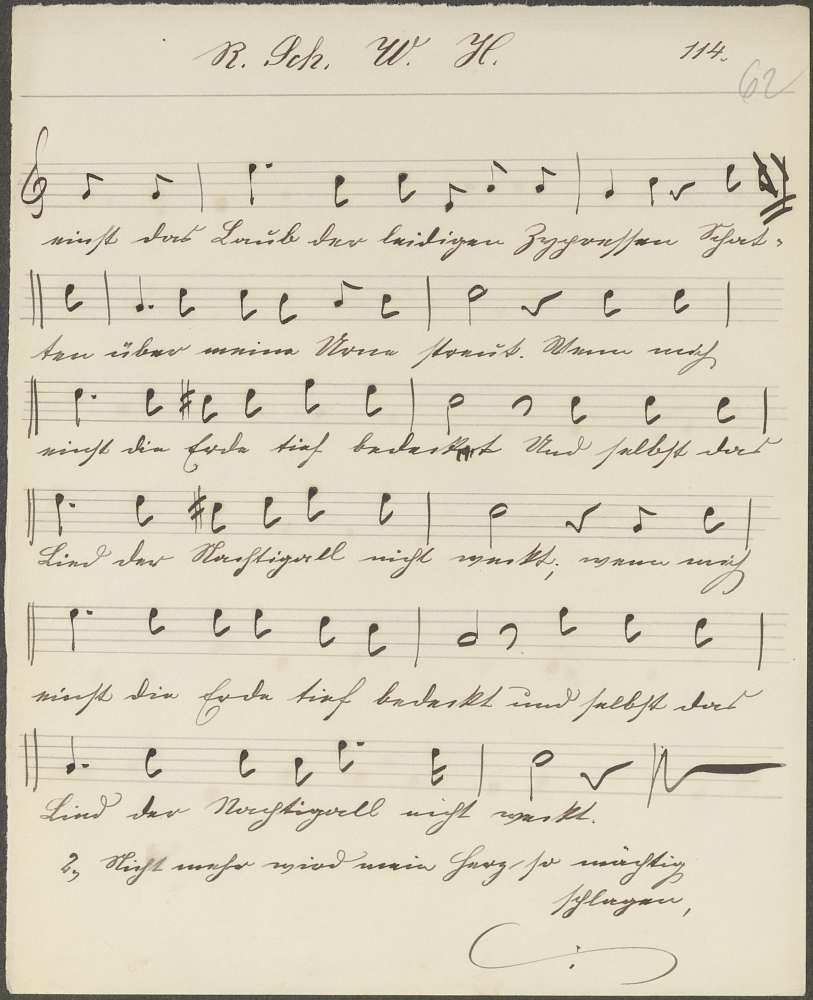 R. Sch. W. H. 114.
62
einst das Laub der leidigen Zypressen Schat-
ten über meine Urne streut. Wenn mich
einst die Erde tief bedeckt Und selbst das
Lied der Nachtigall nicht weckt; wenn mich
einst die Erde tief bedeckt und selbst das
Lied der Nachtigall nicht weckt.
2, Nicht mehr wird mein Herz so mächtig
schlagen,